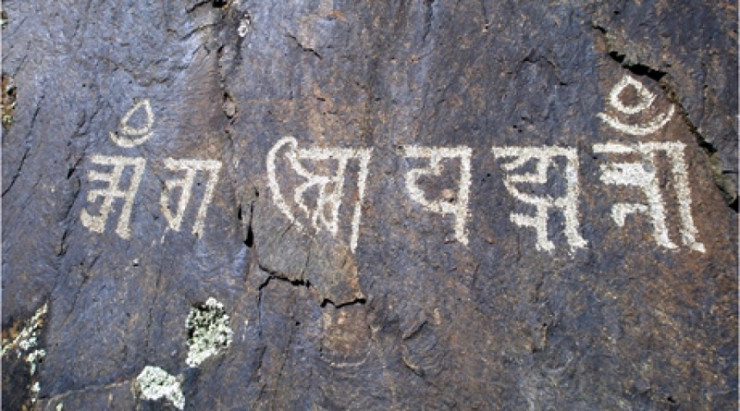 ॐ म णि प द्मे हूँ